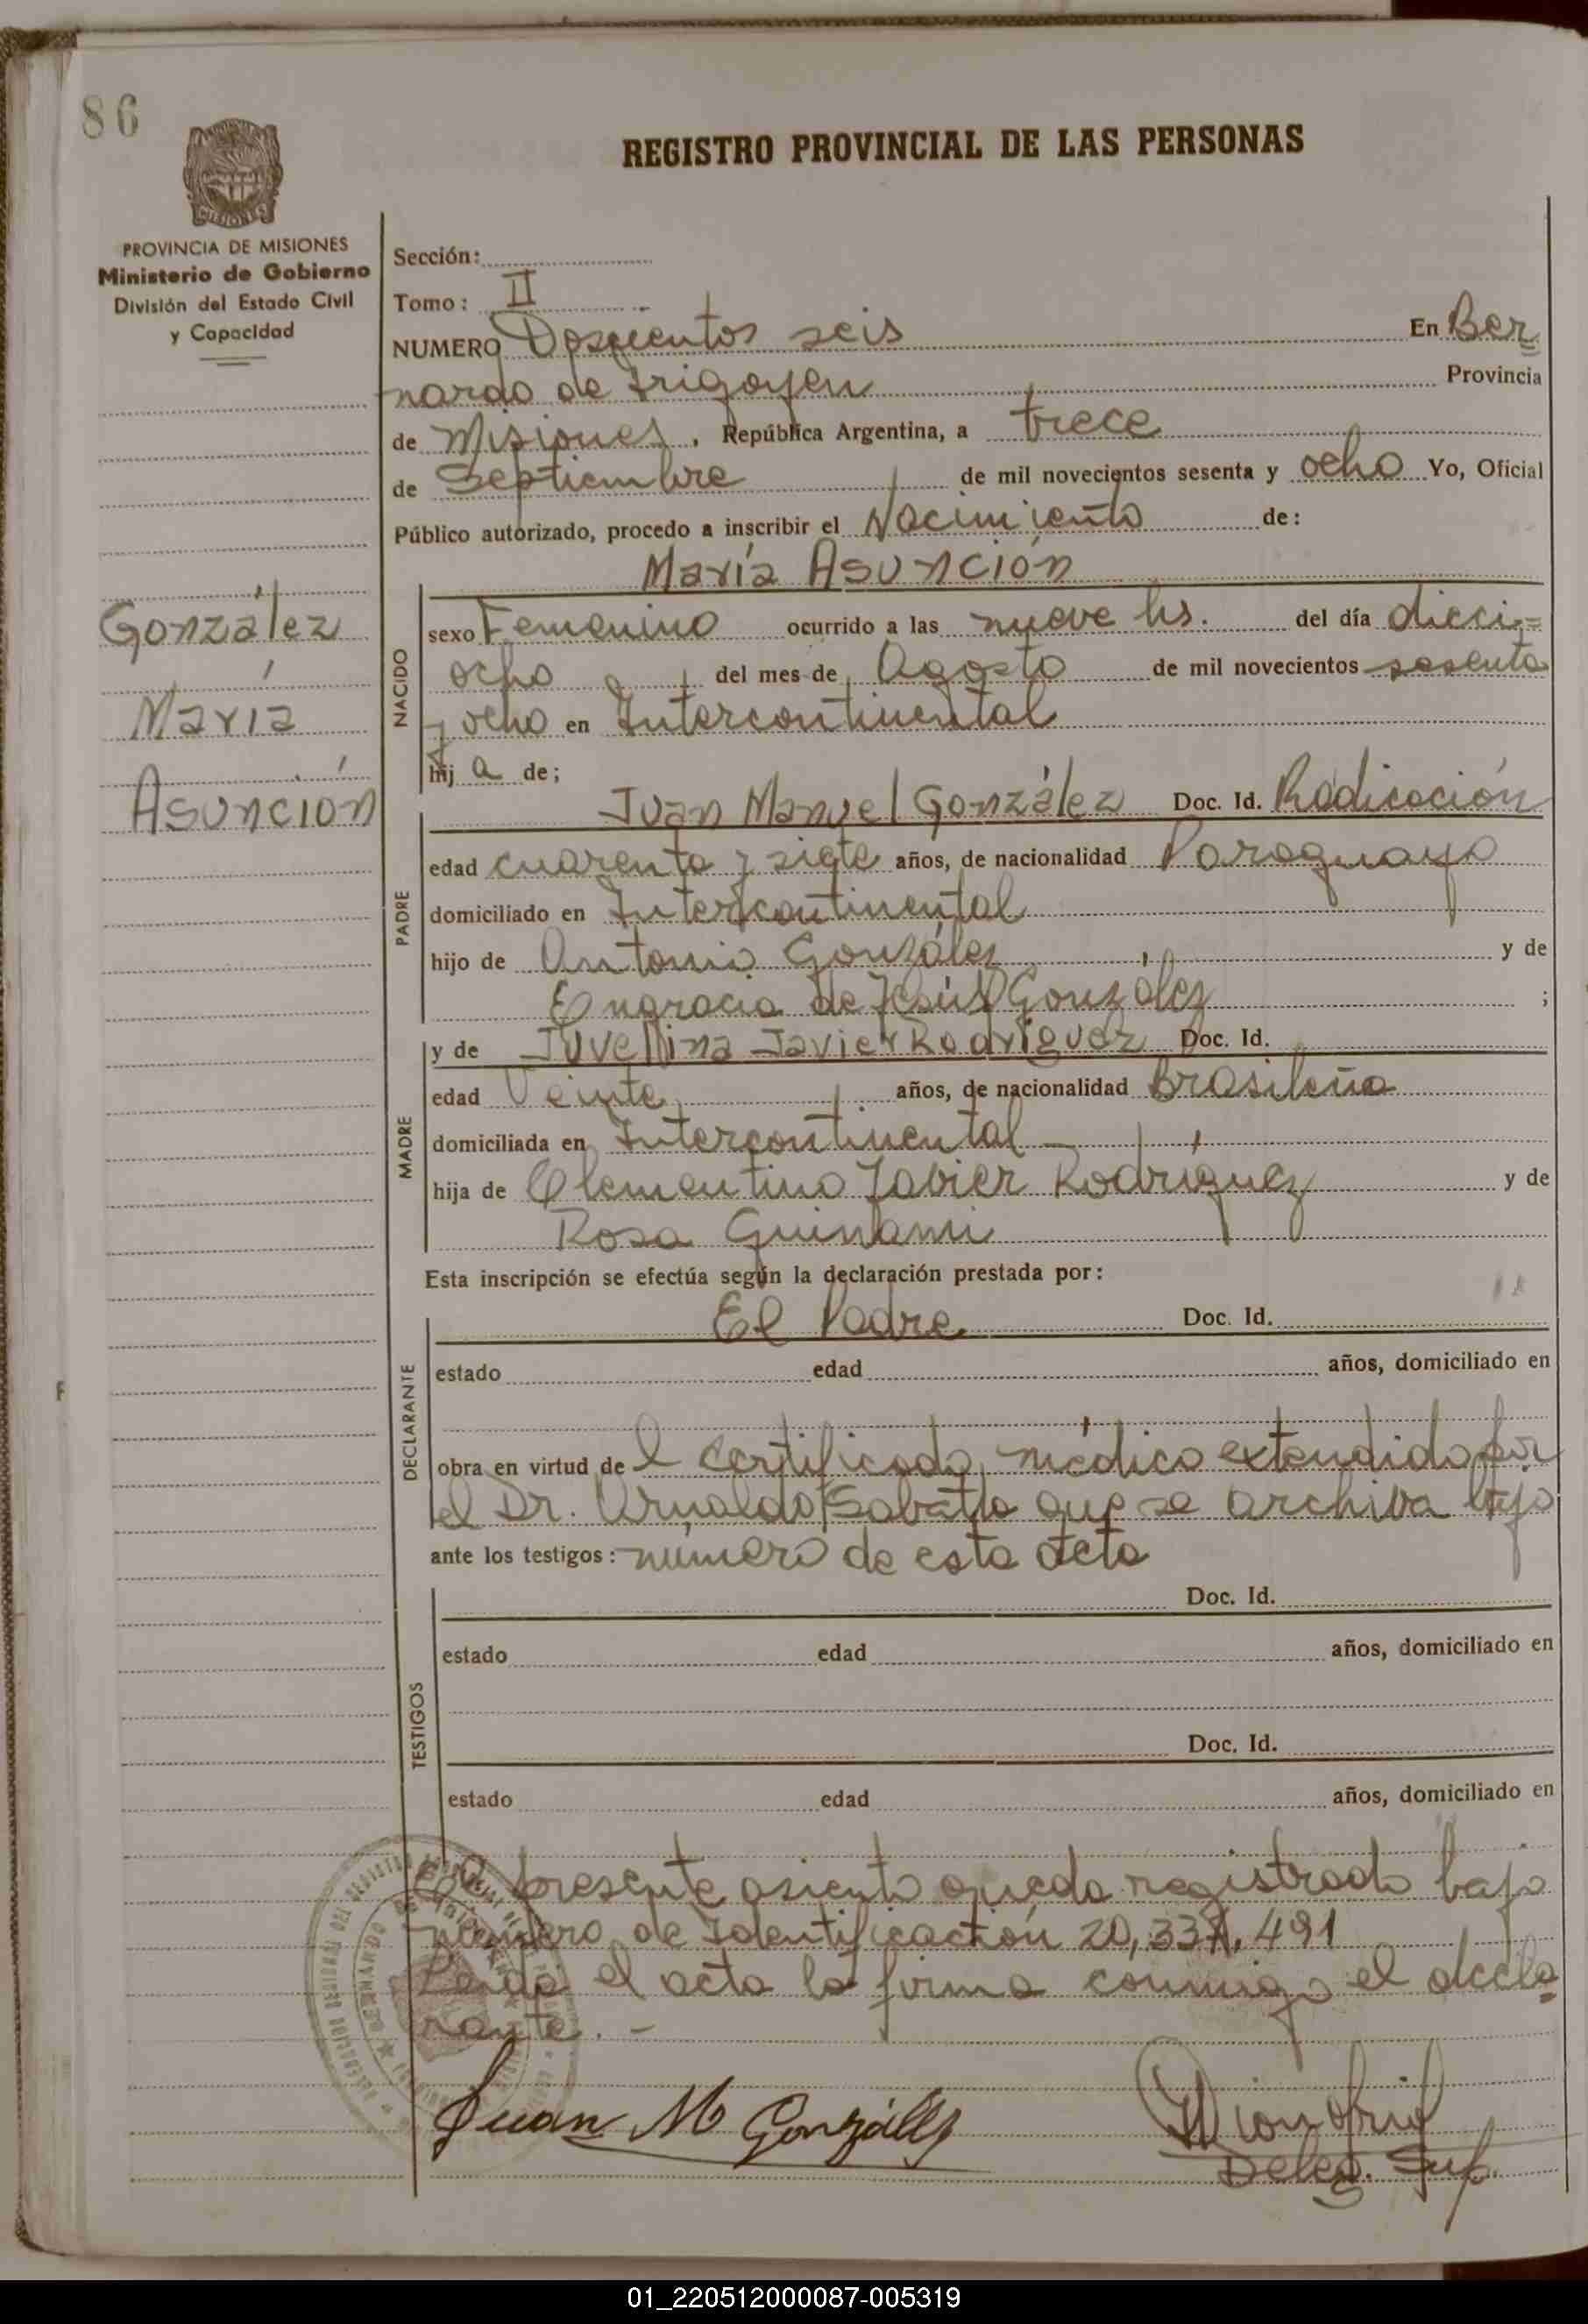 86
REGISTRO PROVINCIAL DE LAS PERSONAS
MISIONES
PROVINCIA DE MISIONES
Ministerio de Gobierno
División del Estado Civil
y Capacidad
González
María
Asunción
Sección:
Tomo: II
NUMERO Doscientos seis En Ber
nardo de Irigoyen Provincia
de Misiones, República Argentina, a trece
de Septiembre de mil novecientos sesenta y ocho Yo, Oficial
Público autorizado, procedo a inscribir el Nacimiento de:
María Asunción
NACIDO
sexo Femenino ocurrido a las nueve hs. del día dieci=
ocho del mes de Agosto de mil novecientos sesenta
y ocho en Intercontinental
hij a de;
Juan Manuel González Doc. Id. Radicación
PADRE
edad cuarenta y siete años, de nacionalidad Paraguaya
domiciliado en Intercontinental
hijo de Antonio González y de
Engracia de Jesús González ;
y de Juvellina Javier Rodríguez Doc. Id.
MADRE
edad Veinte años, de nacionalidad Brasileña
domiciliada en Intercontinental
hija de Clementino Javier Rodríguez y de
Rosa Guinami
Esta inscripción se efectúa según la declaración prestada por:
El Padre Doc. Id.
DECLARANTE
estado edad años, domiciliado en
obra en virtud de l certificado médico extendido por
el Dr. Arnaldo Sabatto que se archiva bajo
ante los testigos: número de esta acta
Doc. Id.
TESTIGOS
estado edad años, domiciliado en
Doc. Id.
estado edad años, domiciliado en
El presente asiento queda registrado bajo
número de Identificación 20,337,491
Leída el acta la firma conmigo el decla
rante. -
Juan M González
Deleg. Sup.
01_220512000087-005319